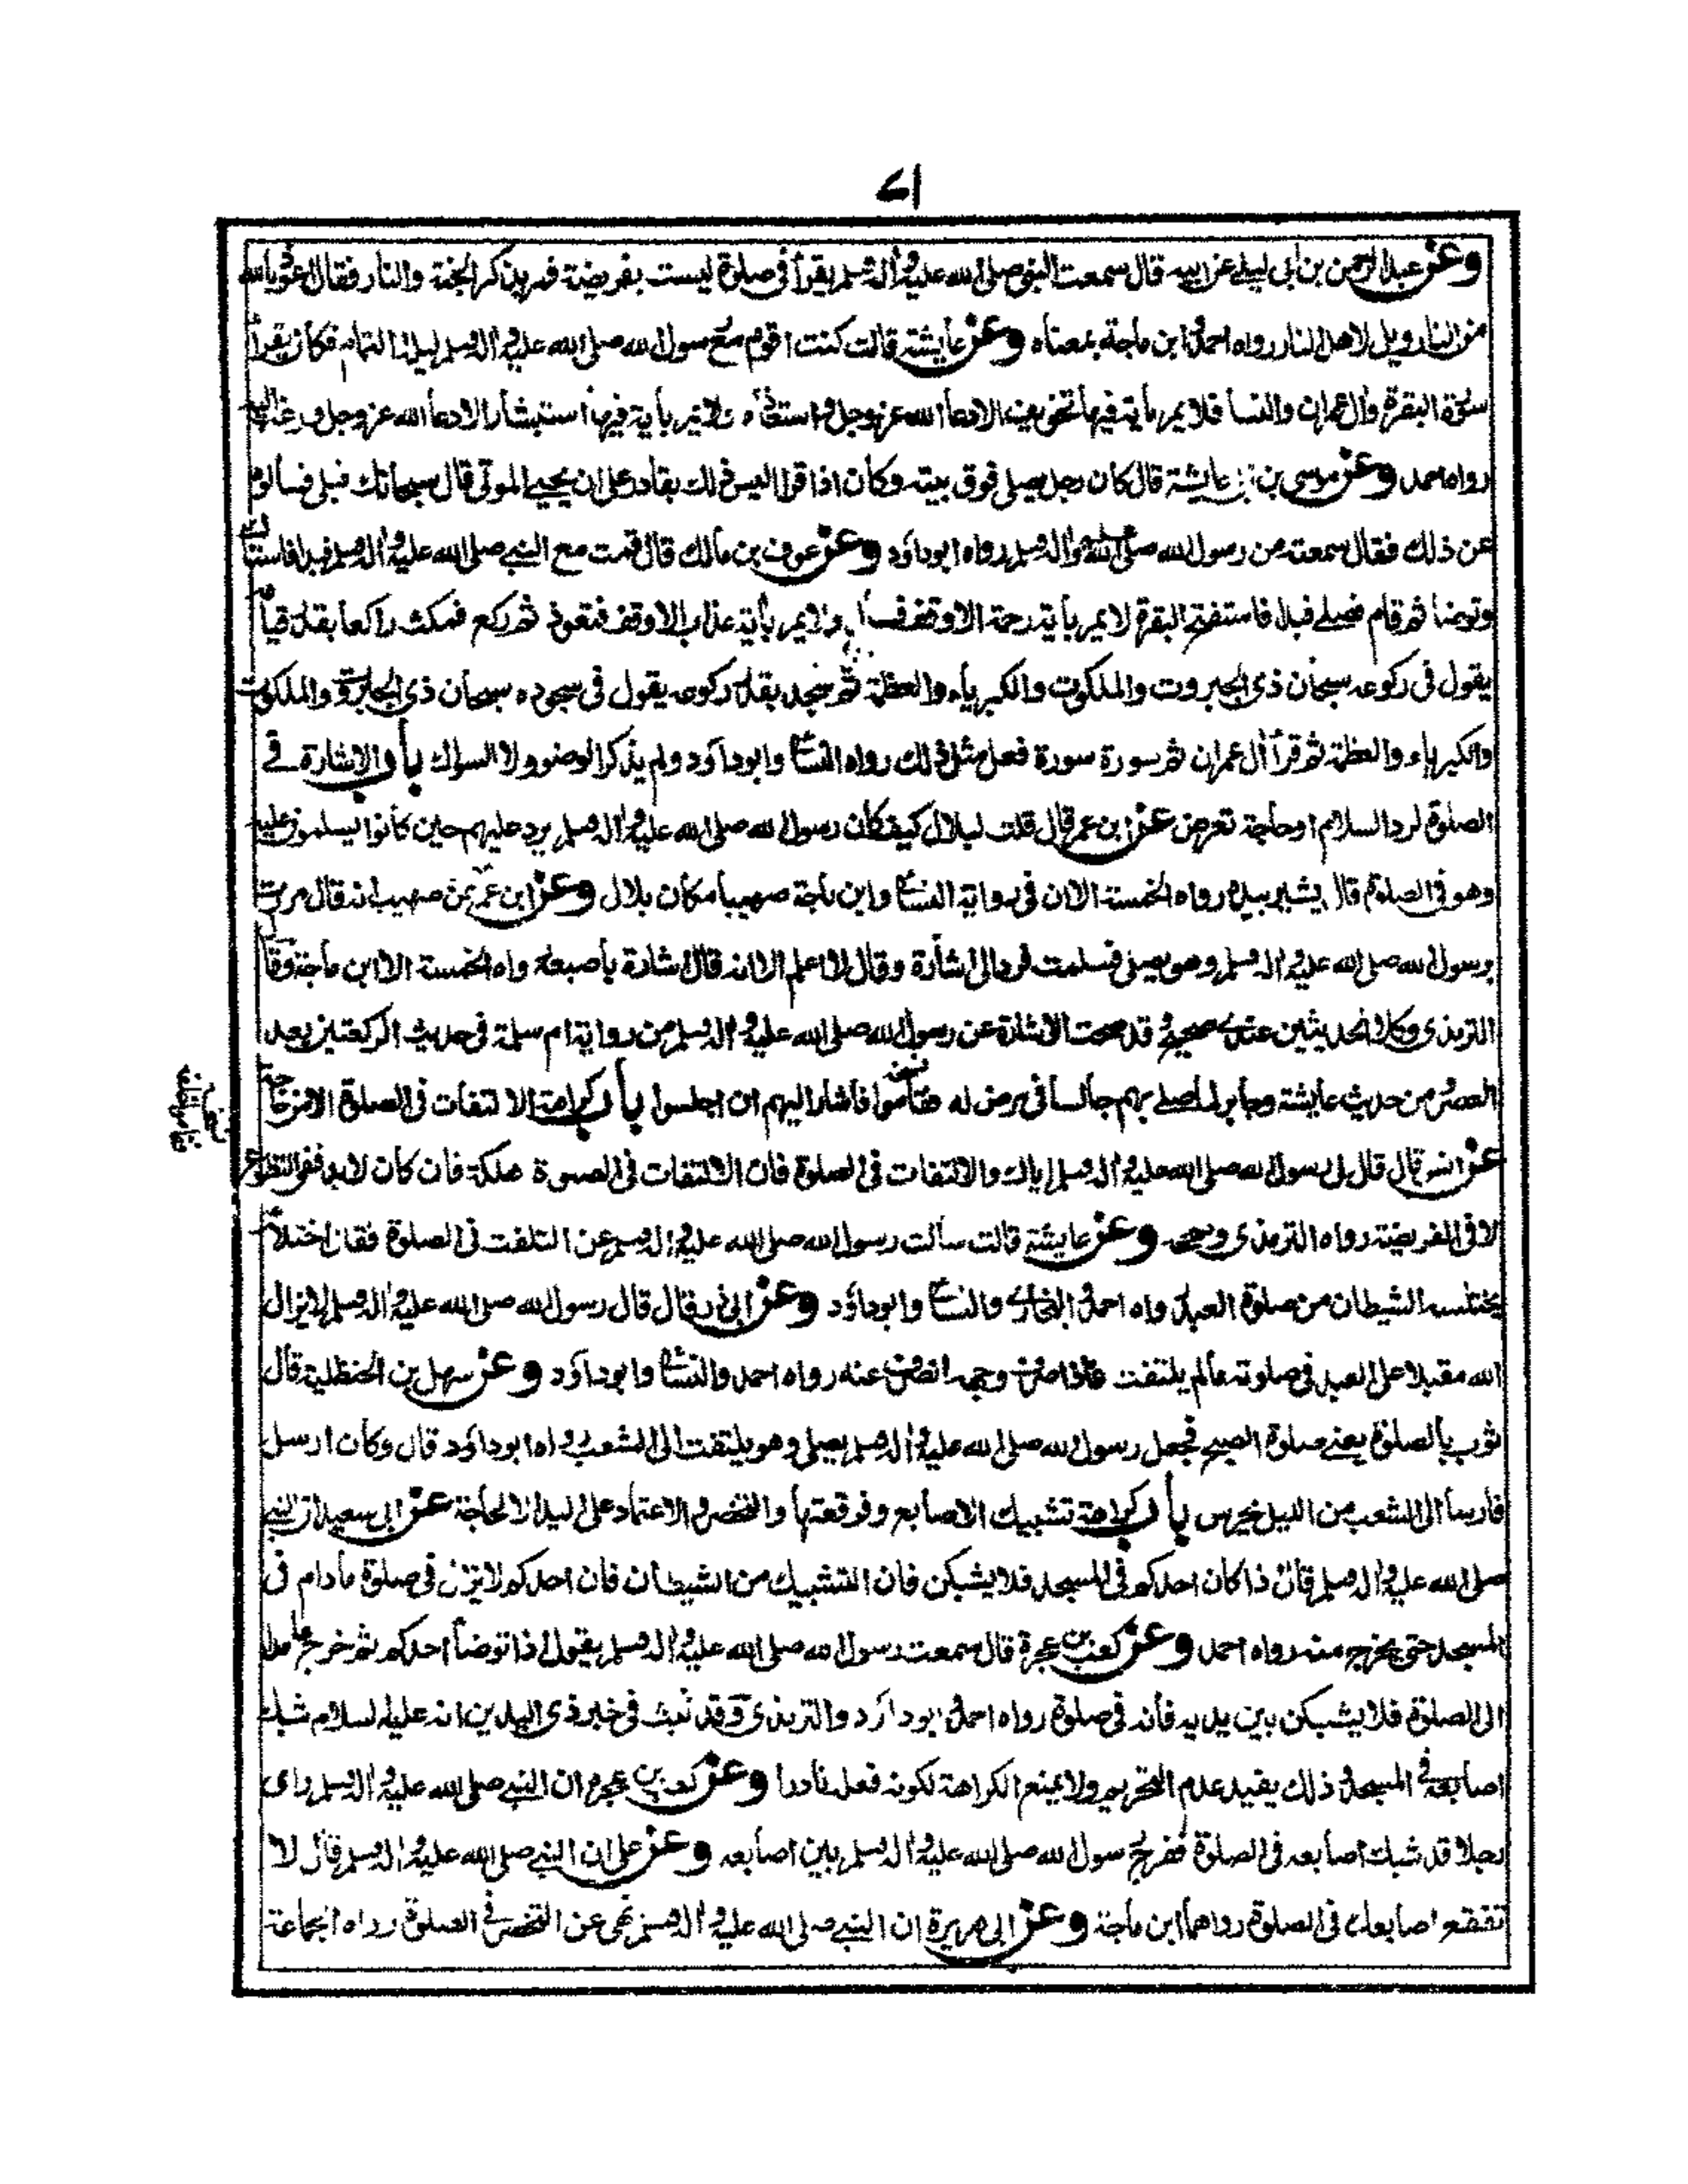 ٧١
وعن عبد الرحمن بن ابى ليلى عن ابيه قال سمعت النبى صلى الله عليه وآله وسلم يقرأ فى صلوة ليست بفريضة فمر بذكر الجنة والنار فقال اعوذ بالله
من النار ويل لاهل النار رواه احمد وابن ماجة بمعناه وعن عايشة قالت كنت اقوم مع رسول الله صلى الله عليه وآله وسلم ليلة التمام فكان يقرأ
سورة البقرة وآل عمران والنسا فلا يمر بأية فيها تخويف الا دعا الله عز وجل واستعاذ ولا يمر بأية فيها استبشار الا دعا الله عز وجل ورغب اليه
رواه احمد وعن موسى بن ابى عايشة قال كان رجل يصلى فوق بيته وكان اذا قرأ اليس ذلك بقادر على ان يحيى الموتى قال سبحانك فبلى فسألوه
عن ذلك فقال سمعته من رسول الله صلى الله عليه وآله وسلم رواه ابو داؤد وعن عوف بن مالك قال قمت مع النبى صلى الله عليه وآله وسلم فبدا فاستاك
وتوضا ثم قام فصلى فبدا فاستفتح البقرة لا يمر بأية رحمة الا وقف فسأل ولا يمر بأية عذاب الا وقف فتعوذ ثم ركع فمكث راكعا بقدر قيامه
يقول فى ركوعه سبحان ذى الجبروت والملكوت والكبرياء والعظمة ثم سجد بقدر ركوعه يقول فى سجوده سبحان ذى الجبروت والملكوت
والكبرياء والعظمة ثم قرأ آل عمران ثم سورة سورة فعل مثل ذلك رواه النسائى وابو داؤد ولم يذكر الوضوء ولا السواك باب الاشارة فى
الصلوة لرد السلام او حاجة تعرض عن ابن عمر قال قلت لبلال كيف كان رسول الله صلى الله عليه وآله وسلم يرد عليهم حين كانوا يسلمون عليه
وهو فى الصلوة قال يشير بيده رواه الخمسة الا ان فى رواية النسائى وابن ماجة صهيبا مكان بلال وعن ابن عمر عن صهيب انه قال مررت
برسول الله صلى الله عليه وآله وسلم وهو يصلى فسلمت فرد الى اشارة وقال لا اعلم الا انه قال اشارة بأصبعه رواه الخمسة الا ابن ماجة وقال
الترمذى وكلا الحديثين عندى صحيح وقد صحت الاشارة عن رسول الله صلى الله عليه وآله وسلم من رواية ام سلمة فى حديث الركعتين بعد
العصر ومن حديث عايشة وجابر لما صلى بهم جالسا فى مرض له فقاموا فاشار اليهم ان اجلسوا باب كراهة الالتفات فى الصلوة الا من حاجة
عن انس قال قال لى رسول الله صلى الله عليه وآله وسلم اياك والالتفات فى الصلوة فان الالتفات فى الصلوة هلكة فان كان لا بد ففى التطوع
لا فى الفريضة رواه الترمذى وصححه وعن عايشة قالت سألت رسول الله صلى الله عليه وآله وسلم عن التلفت فى الصلوة فقال اختلاس
يختلسه الشيطان من صلوة العبد رواه احمد والبخارى والنسائى وابو داؤد وعن ابى ذر قال قال رسول الله صلى الله عليه وآله وسلم لا يزال
الله مقبلا على العبد فى صلوته مالم يلتفت فاذا صرف وجهه انصرف عنه رواه احمد والنسائى وابو داؤد وعن سهل بن الحنظلية قال
ثوب بالصلوة يعنى صلوة الصبح فجعل رسول الله صلى الله عليه وآله وسلم يصلى وهو يلتفت الى الشعب رواه ابو داؤد قال وكان ارسل
فارسا الى الشعب من الليل يحرس باب كراهة تشبيك الاصابع وفرقعتها والتخصر والاعتماد على اليد الا لحاجة عن ابى سعيد ان النبى
صلى الله عليه وآله وسلم قال اذا كان احدكم فى المسجد فلا يشبكن فان التشبيك من الشيطان فان احدكم لا يزال فى صلوة مادام فى
المسجد حتى يخرج منه رواه احمد وعن كعب بن عجرة قال سمعت رسول الله صلى الله عليه وآله وسلم يقول اذا توضأ احدكم ثم خرج عامدا
الى الصلوة فلا يشبكن بين يديه فأنه فى صلوة رواه احمد وابو داؤد والترمذى وقد ثبت فى خبر ذى اليدين انه عليه السلام شبك
اصابعه فى المسجد وذلك يفيد عدم التحريم ولا يمنع الكراهة لكونه فعله نادرا وعن كعب بن عجرة ان النبى صلى الله عليه وآله وسلم راى
رجلا قد شبك اصابعه فى الصلوة ففرج رسول الله صلى الله عليه وآله وسلم بين اصابعه وعن على ان النبى صلى الله عليه وآله وسلم قال لا
تفقع اصابعك فى الصلوة رواهما ابن ماجة وعن ابى هريرة ان النبى صلى الله عليه وآله وسلم نهى عن التخصر فى الصلوة رواه الجماعة